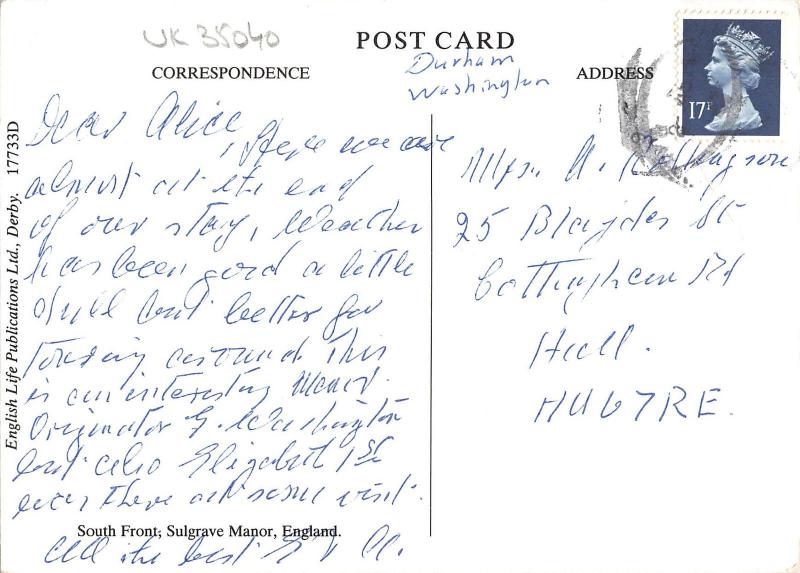 UK 35040
POST CARD
CORRESPONDENCE
Durham
Washington
ADDRESS
17P
Dear Alice
, Here we are
almost at the end
of our stay, Weather
has been good a little
dull but better for
touring around. This
is an interesting Manor.
Originator G. Washington
but also Elizabeth 1st
was there at some visit.
All the best
Mrs. A.
25 Blaydes St
Cottingham Rd
Hull.
HU6 7RE.
South Front; Sulgrave Manor, England.
English Life Publications Ltd., Derby. 17733D